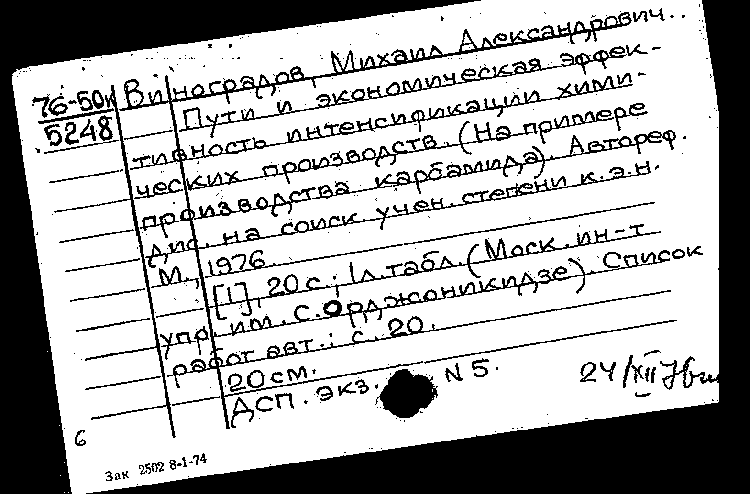 76-50к
5248
Виноградов, Михаил Александрович.
Пути и экономическая эффек-
тивность интенсификации хими-
ческих производств. (На примере
производства карбамида). Автореф.
дис. на соиск. учен. степени к.э.н.
М., 1976.
[1], 20 с.; 1 л. табл. (Моск. ин-т
упр. им. С. Орджоникидзе). Список
работ авт.: с. 20.
20 см.
ДСП. экз. N 5.
24/XII
6
Зак 2502 8-1-74